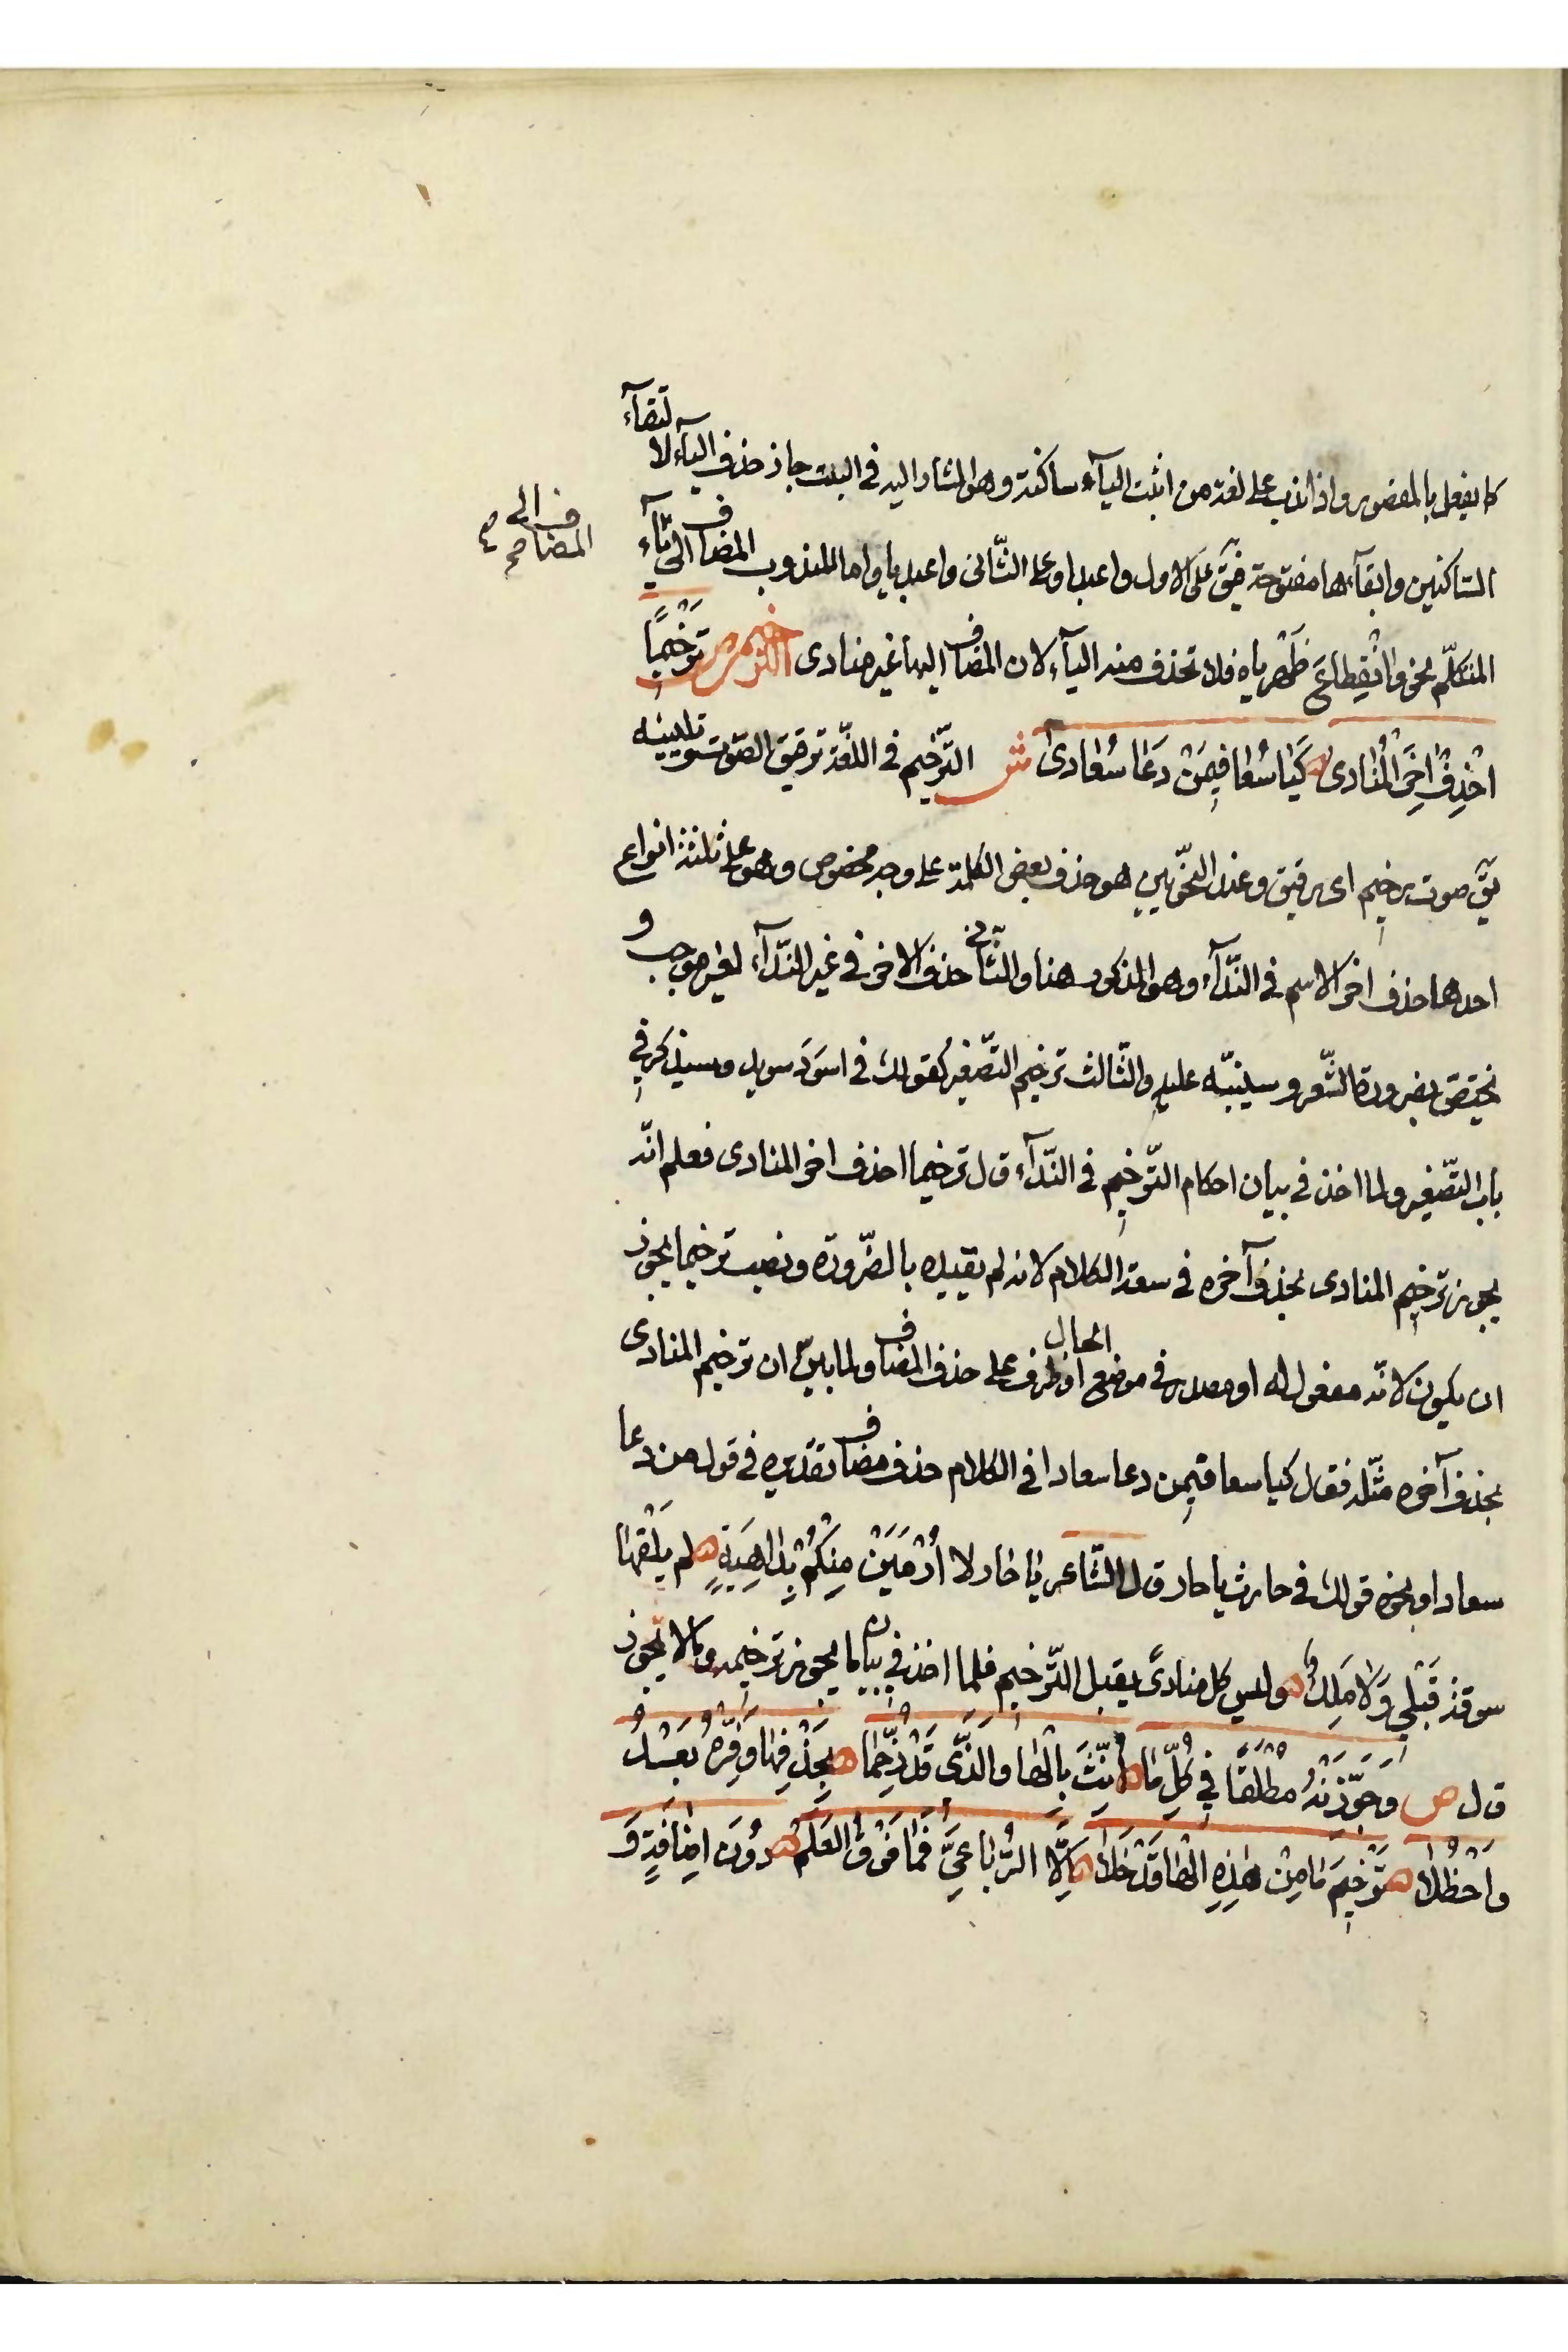 كما يفعل بالمقصور واذا ندب على لغة من اثبت الياء ساكنة وهو المشار اليه في البيت جاز حذف الياء لالتقاء
الساكنين وابقآءها مفتوحة فيق على الاول واعبدا وعلى الثّانى واعبديا واما المندوب المضاف الى ياء
المضاف الى
المتكلّم نحو وا انْقِطاعَ ظَهْرِياه فلا تحذف منه اليآء لان المضاف اليها غير منادى الترخيم ص تَرْخِيمًا
احْذِفْ آخِرَ الْمُنادى ه كَيَا سُعا فيمَنْ دَعَا سُعادى ش التّرخيم فى اللغة ترقيق الصّوت وتليينه
يقّ صوت رخيم اى رقيق وعند النحّويين هو حذف بعض الكلمة على وجه مخصوص وهو على ثلثة انواع
احدها حذف اخر الاسم فى النّدآء وهو المذكور هنا والثّاني حذف الاخر فى غير النّدآء لغير موجب و
يختصّ بضرورة الشّعر وسينبّه عليه والثّالث ترخيم التّصغير كقولك فى اسْوَد سويد وسيذكر فى
باب التّصغير ولما اخذ فى بيان احكام التّرخيم فى النّدآء ق ل ترخيما احذف اخر المنادى فعلم انّه
يجوز ترخيم المنادى بحذف آخره فى سعة الكلام لانه لم يقيده بالضّرورة ونصب ترخيما يجوز
ان يكون لانّه مفعول له او مصدر فى موضع الحال او ظرف على حذف المضاف ولما بيّن ان ترخيم المنادى
بحذف آخره مثّله فقال كيا سعا فيمن دعا سعادا فى الكلام حذف مضاف تقديره فى قول من دعا
سعادا ونحوه قولك فى حارث يا حار ق ل الشّاعر يٰا حٰار لا أُرْمَيَنْ مِنْكُمْ بِدٰاهِيَةٍ ه لم يَلْقَهٰا
سوقة قَبْلي وَلا مَلِكُ ه وليس كل منادىً يقبل التّرخيم فلما اخذ في بيان ما يجوز ترخيمه وما لا يجوز
ق ل ص وَجَوِّزَنْهُ مُطْلَقًا فِي كُلِّ مٰا ه أُنِّثَ بِالْهٰا وَالَّذى قَدْ رُخِّمٰا ه بِحَذْفِهٰا وَفِّرْهُ بَعْدُ
وَاحْظُلا ه تَرْخِيمَ مٰا مِنْ هٰذِهِ الْهٰا قَدْ خَلٰا ه إلّا الرُّبٰاعِىَّ فَمٰا فَوْقُ الْعَلَمْ ه دُونَ اِضٰافَةٍ وَ